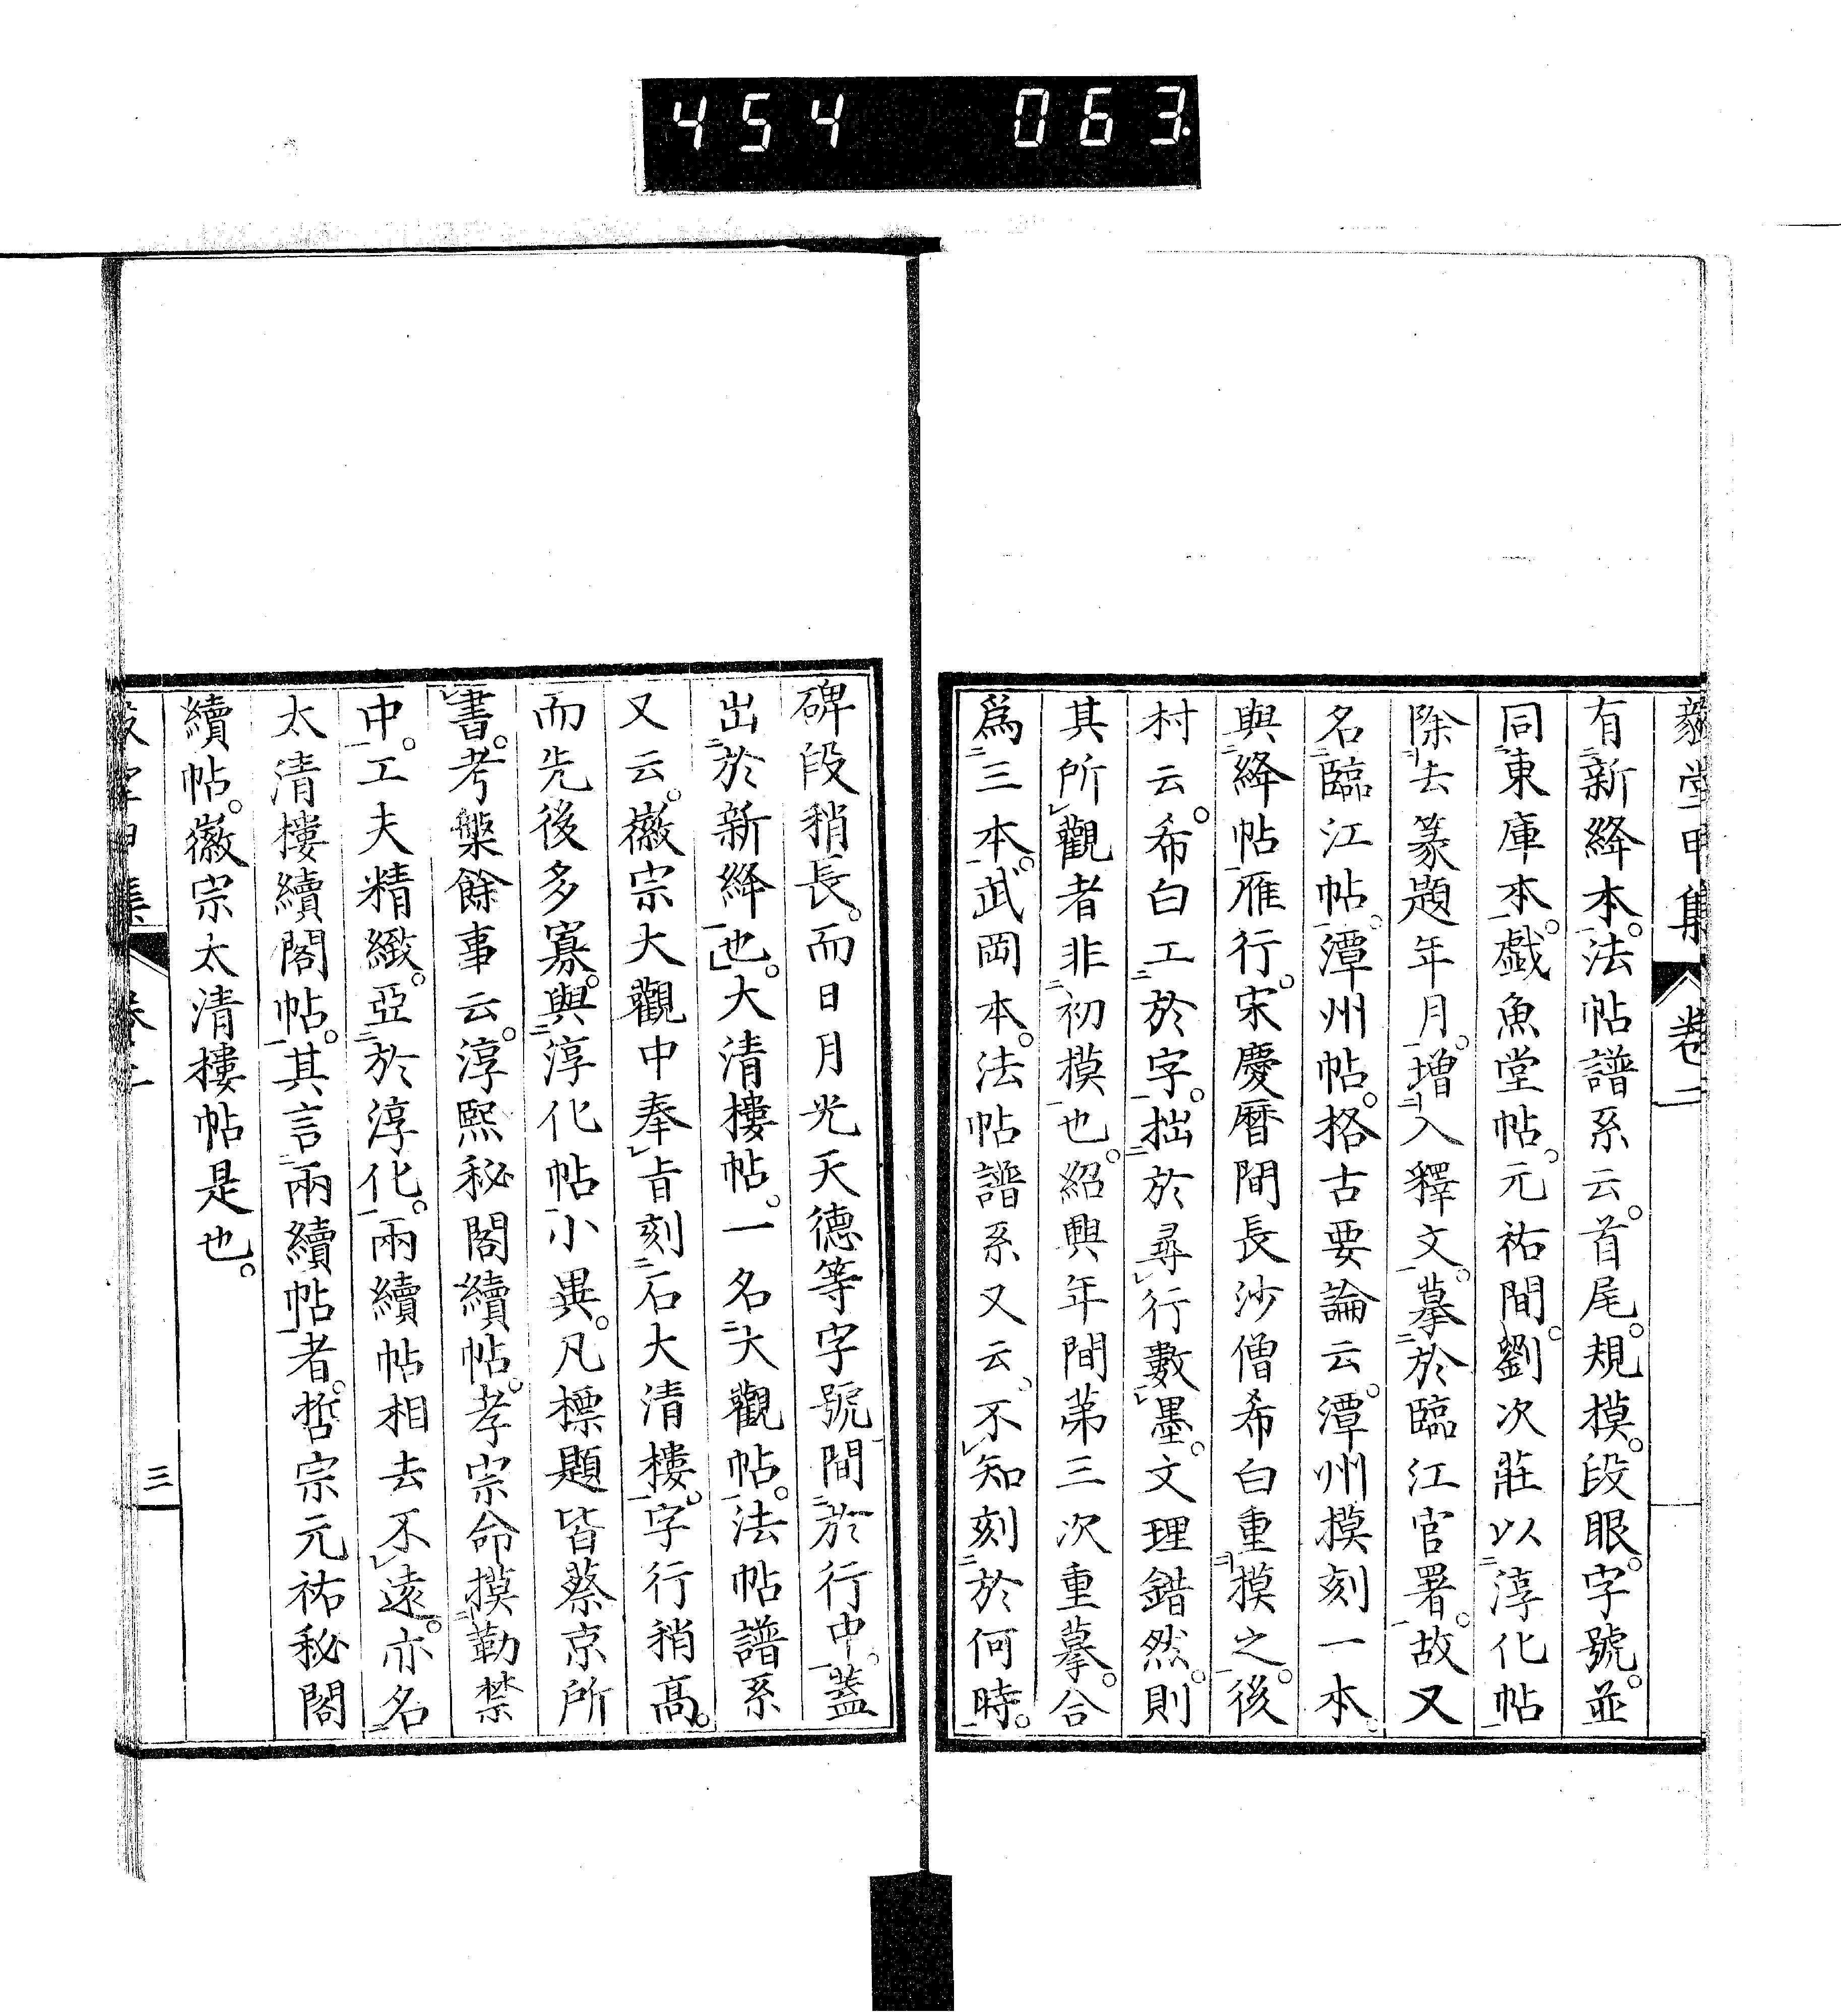 454 063.
毅堂甲集 卷一
有新絳本。法帖譜系云。首尾。規模。段眼。字號。並
同東庫本。戲魚堂帖。元祐間。劉次莊以淳化帖
除去篆題年月。增入釋文。摹於臨江官署。故又
名臨江帖。潭州帖。格古要論云。潭州摸刻一本。
與絳帖雁行。宋慶曆間長沙僧希白重摸之。後
村云。希白工於字。拙於尋行數墨。文理錯然。則
其所觀者非初摸也。紹興年間第三次重摹。合
爲三本。武岡本。法帖譜系又云。不知刻於何時。
碑段稍長。而日月光天德等字號間於行中。蓋
出於新絳也。大清樓帖。一名大觀帖。法帖譜系
又云。徽宗大觀中奉旨刻石大清樓。字行稍高。
而先後多寡。與淳化帖小異。凡標題皆蔡京所
書。考槃餘事云。淳熙秘閣續帖。孝宗命摸勒禁
中。工夫精緻。亞於淳化。兩續帖相去不遠。亦名
太清樓續閣帖。其言兩續帖者。哲宗元祐秘閣
續帖。徽宗太清樓帖是也。
三